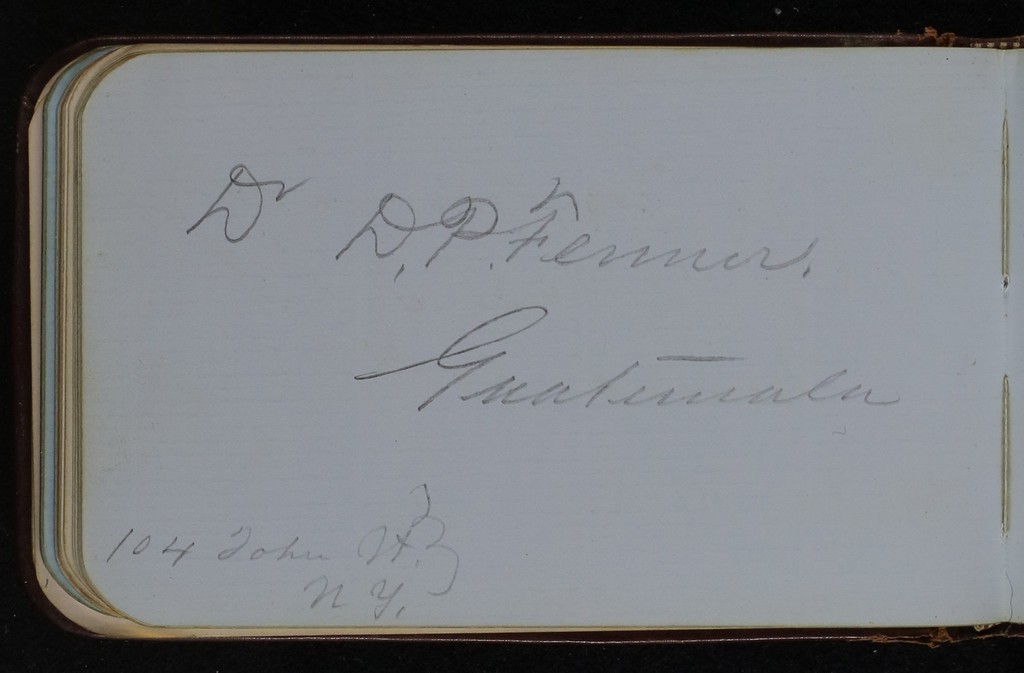 Dr D. P. Fenner.
Guatemala
104 John St.
N Y.